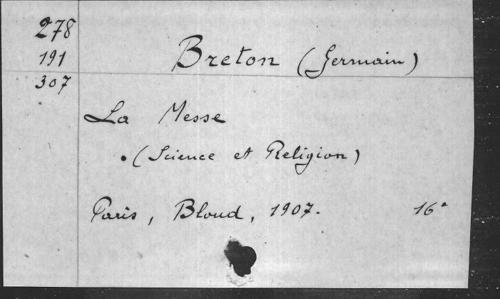 278
191
307
Breton (Germain)
La Messe
(Science et Religion)
Paris, Bloud, 1907. 16°